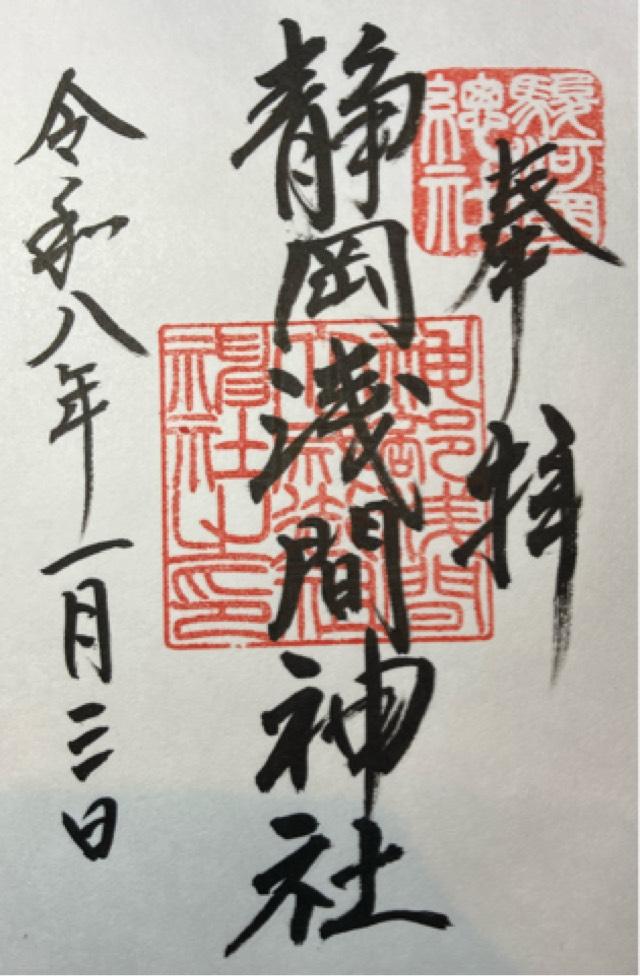 奉拝
駿河国
總社
静岡浅間神社
神部浅間
大歳御祖
神社之印
令和八年一月三日